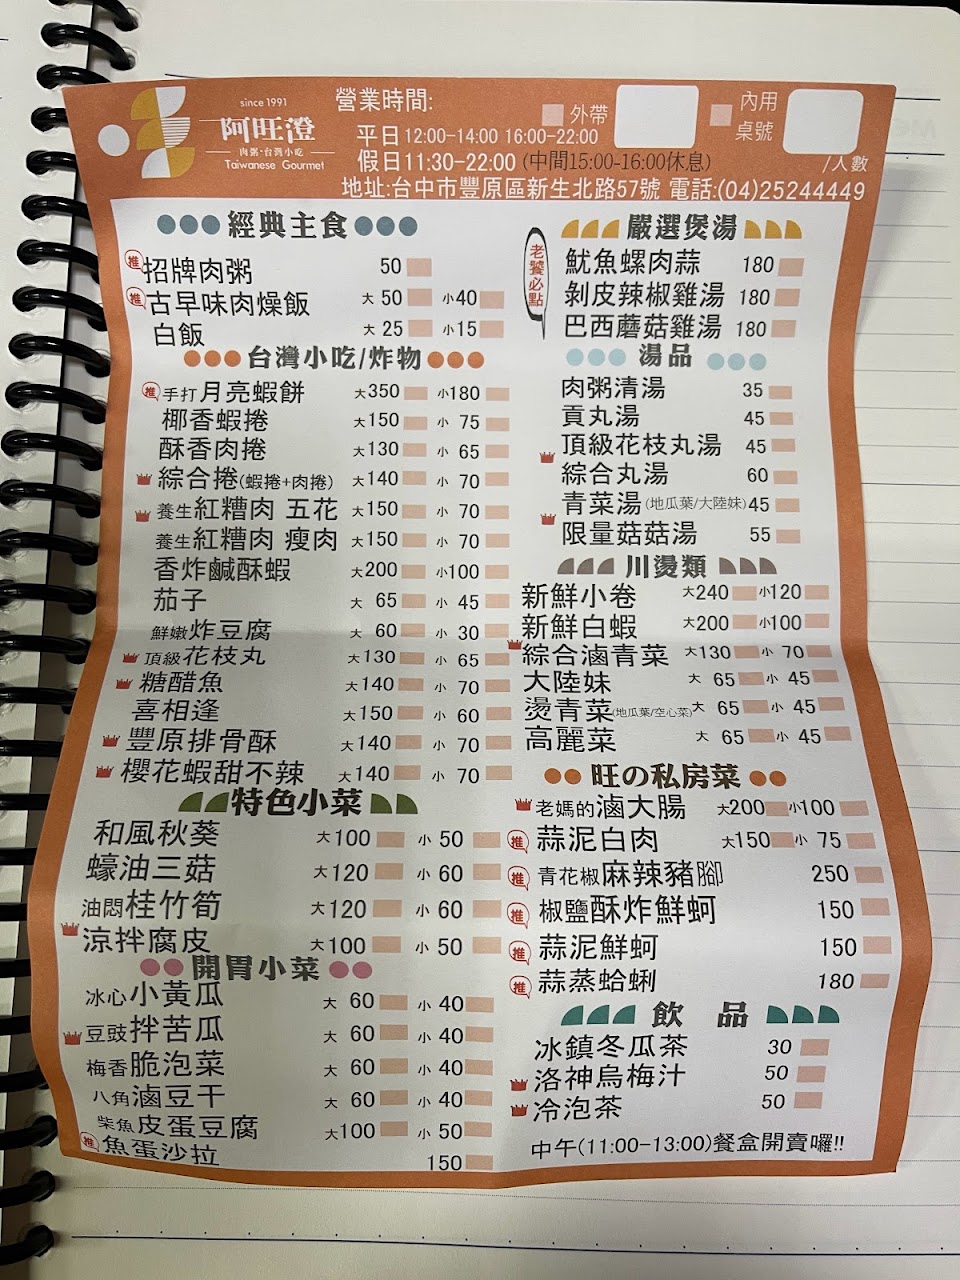 since 1991
阿旺澄
肉粥·台灣小吃
Taiwanese Gourmet
營業時間:
外帶
內用
桌號
/人數
平日12:00-14:00 16:00-22:00
假日11:30-22:00 (中間15:00-16:00休息)
地址:台中市豐原區新生北路57號 電話:(04)25244449
經典主食
推 招牌肉粥 50
推 古早味肉燥飯 大 50 小40
白飯 大 25 小15
台灣小吃/炸物
推 手打月亮蝦餅 大350 小180
椰香蝦捲 大150 小 75
酥香肉捲 大130 小 65
綜合捲(蝦捲+肉捲) 大140 小 70
養生紅糟肉 五花 大150 小 70
養生紅糟肉 瘦肉 大150 小 70
香炸鹹酥蝦 大200 小100
茄子 大 65 小 45
鮮嫩炸豆腐 大 60 小 30
頂級花枝丸 大130 小 65
糖醋魚 大140 小 70
喜相逢 大150 小 60
豐原排骨酥 大140 小 70
櫻花蝦甜不辣 大140 小 70
特色小菜
和風秋葵 大100 小 50
蠔油三菇 大120 小 60
油悶桂竹筍 大120 小 60
涼拌腐皮 大100 小 50
開胃小菜
冰心小黃瓜 大 60 小 40
豆豉拌苦瓜 大 60 小 40
梅香脆泡菜 大 60 小 40
八角滷豆干 大 60 小 40
柴魚皮蛋豆腐 大100 小 50
推 魚蛋沙拉 150
老饕必點
嚴選煲湯
魷魚螺肉蒜 180
剝皮辣椒雞湯 180
巴西蘑菇雞湯 180
湯品
肉粥清湯 35
貢丸湯 45
頂級花枝丸湯 45
綜合丸湯 60
青菜湯(地瓜葉/大陸妹) 45
限量菇菇湯 55
川燙類
新鮮小卷 大240 小120
新鮮白蝦 大200 小100
綜合滷青菜 大130 小 70
大陸妹 大 65 小 45
燙青菜(地瓜葉/空心菜) 大 65 小 45
高麗菜 大 65 小 45
旺の私房菜
老媽的滷大腸 大200 小100
推 蒜泥白肉 大150 小 75
推 青花椒麻辣豬腳 250
推 椒鹽酥炸鮮蚵 150
推 蒜泥鮮蚵 150
推 蒜蒸蛤蜊 180
飲 品
冰鎮冬瓜茶 30
洛神烏梅汁 50
冷泡茶 50
中午(11:00-13:00)餐盒開賣囉!!